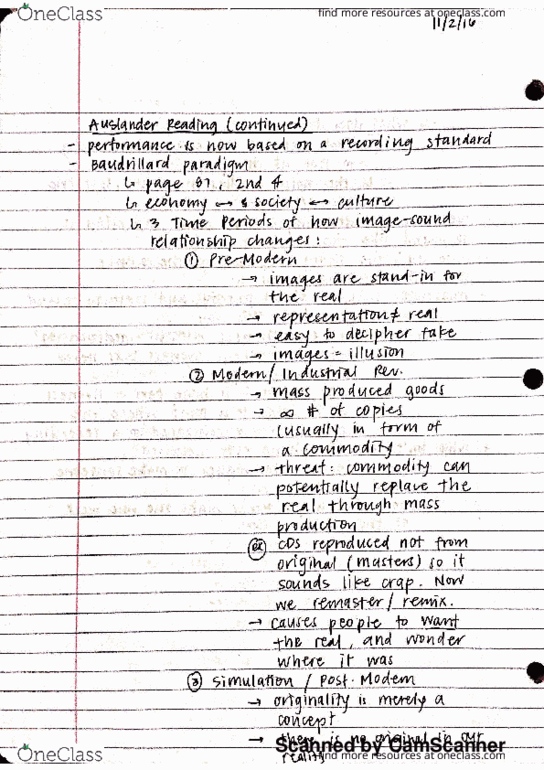 OneClass
find more resources at oneclass.com
11/2/16
Auslander Reading (continued)
- performance is now based on a recording standard
- Baudrillard paradigm
↳ page 37, 2nd ¶
↳ economy ↔ society ↔ culture
↳ 3 Time Periods of how image-sound
relationship changes:
① Pre-Modern
→ images are stand-in for
the real
→ representation ≠ real
→ easy to decipher fake
→ images = illusion
② Modern/ Industrial Rev.
→ mass produced goods
→ ∞ # of copies
(usually in form of
a commodity
→ threat: commodity can
potentially replace the
real through mass
production
ex CDs reproduced not from
original (masters) so it
sounds like crap. Now
we remaster/ remix.
→ causes people to want
the real, and wonder
where it was
③ Simulation / Post-Modern
→ originality is merely a
concept
→ there is no original in our
reality
Scanned by CamScanner
OneClass
find more resources at oneclass.com